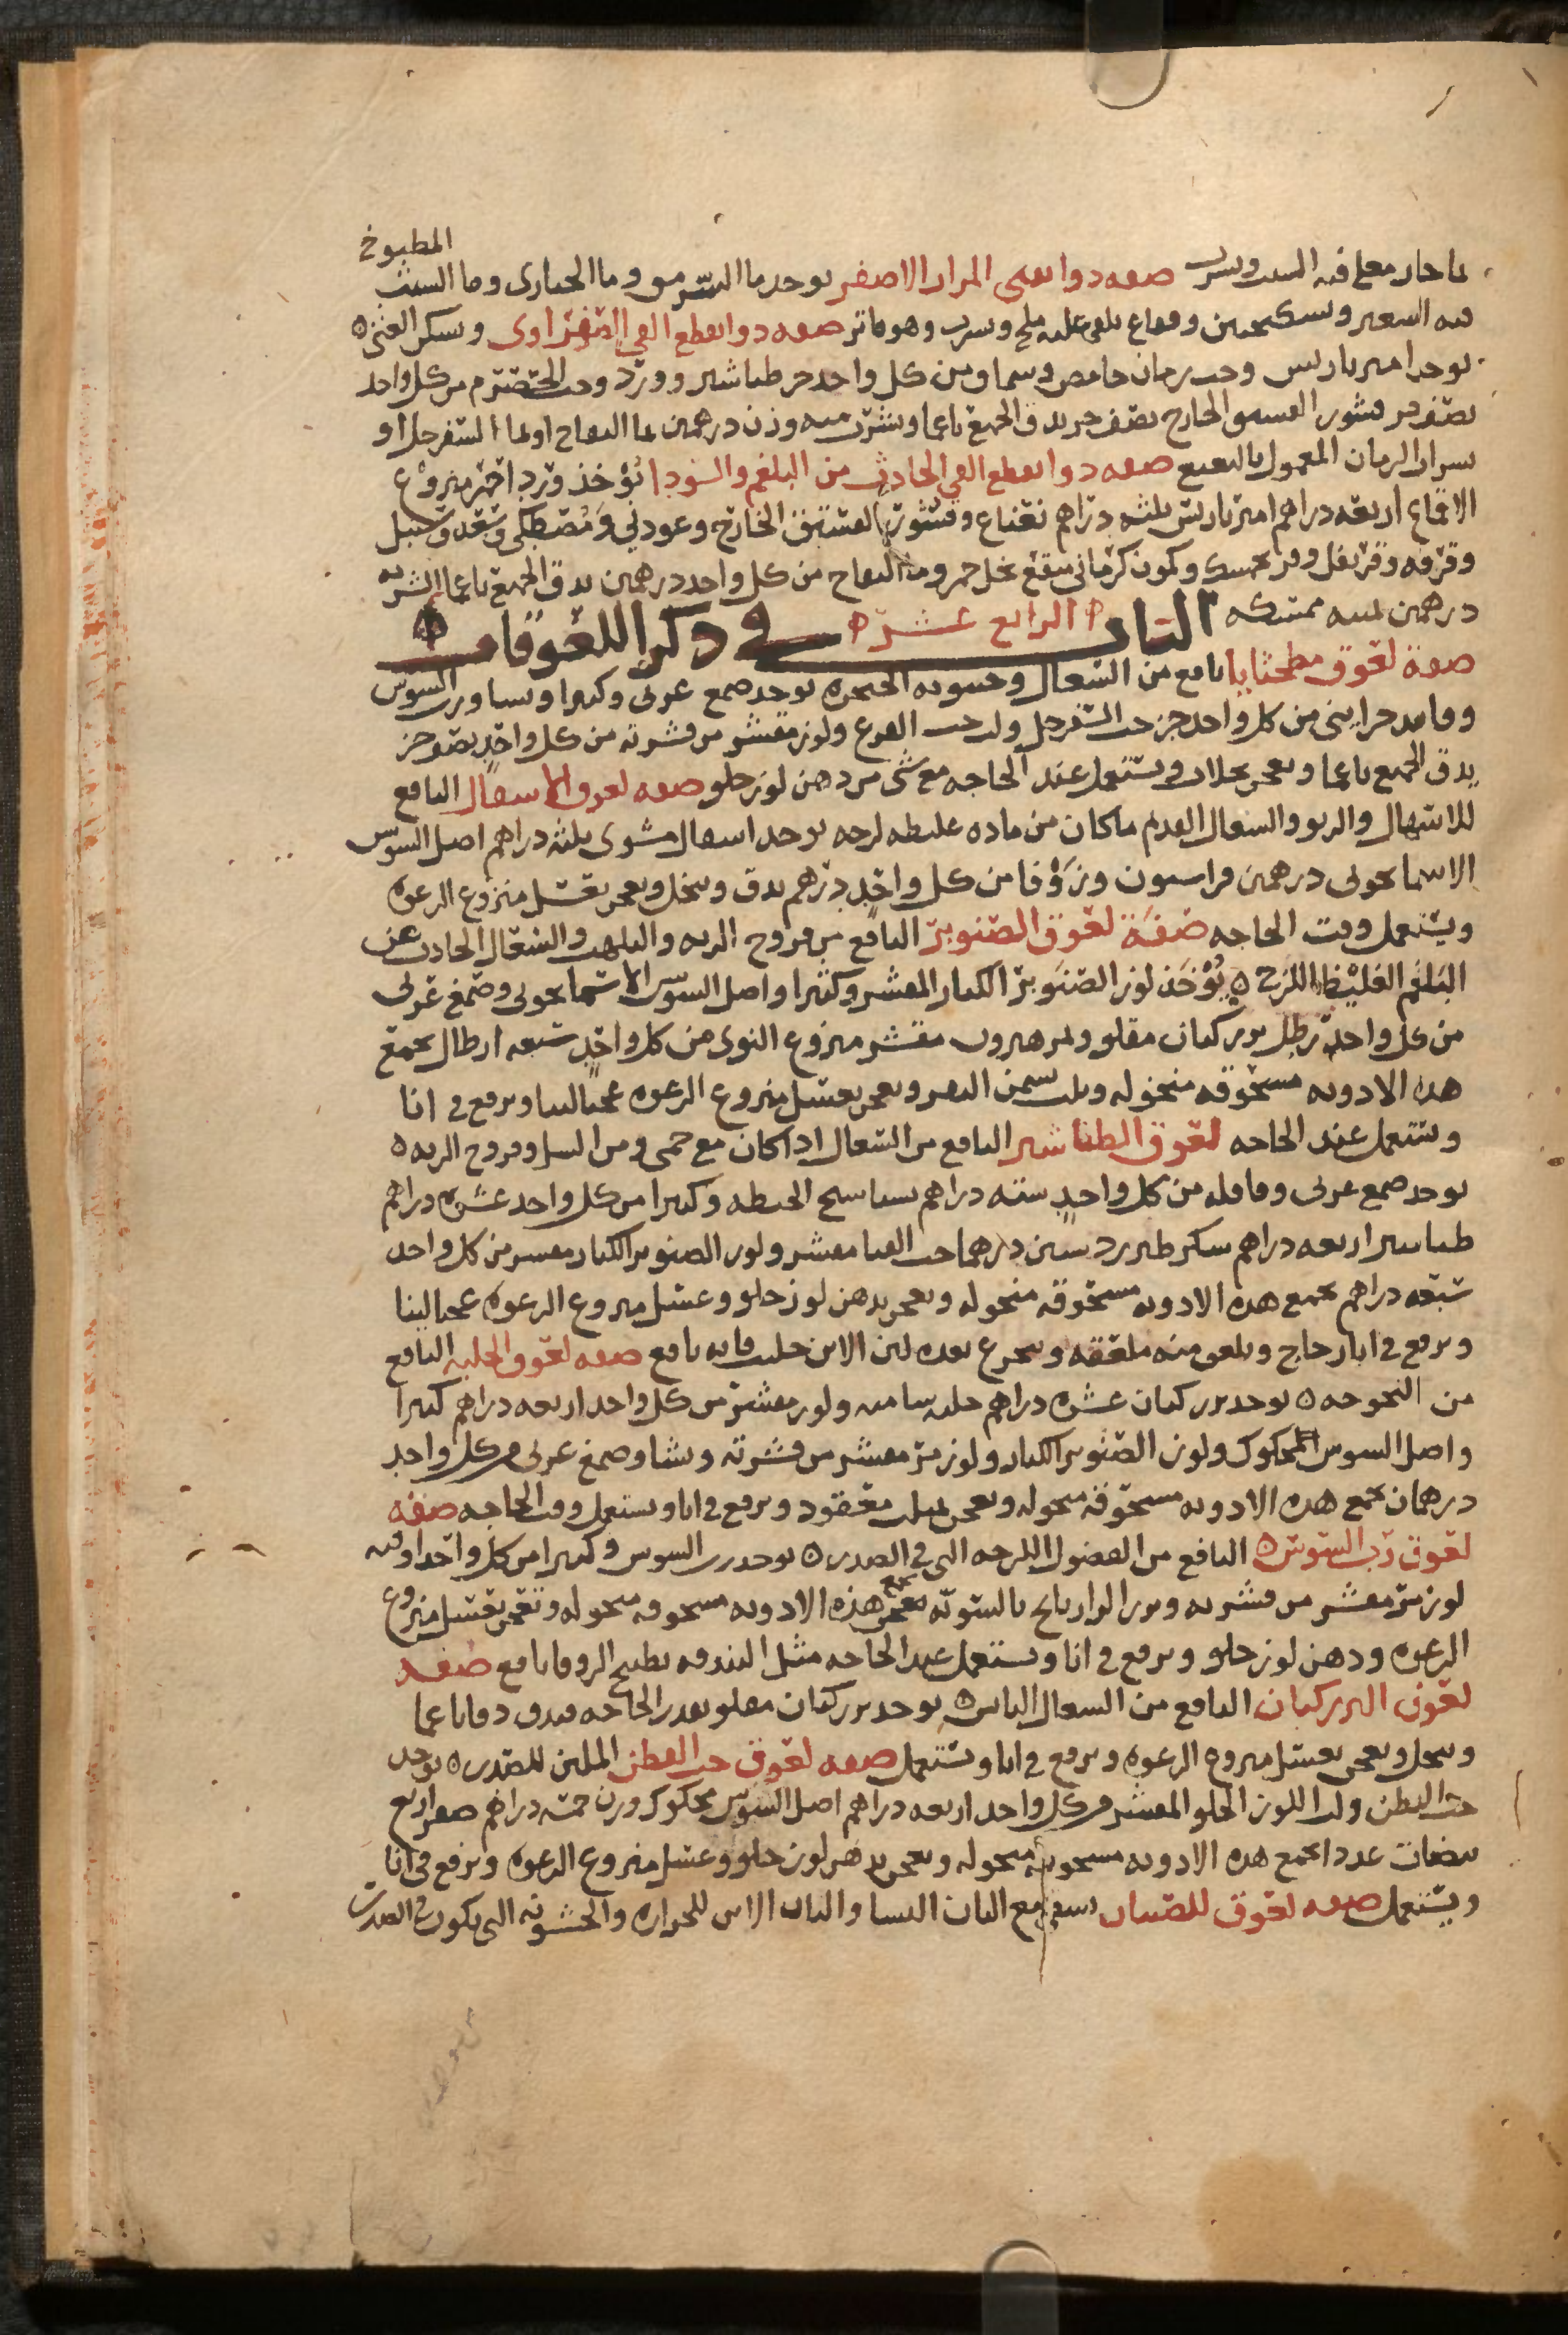 المطبوخ
ماحار معلى فيه الشبت ويشرب صفه دوا يقيى المرار الاصفر يوخد ما السرمق وما الخبازى وما الشبث
فيه الشعير وسكنجبين وفقاع يلقى عليه ملح ويشرب وهو فاتر صفه دوا يقطع القي الصفراوى ويسكن الغثى
يوخد امير باريس وحب رمان حامض وسماق من كل واحد جز طباشير وورد وحب الحصرم من كل واحد
نصف جز قشور الفستق الخارج نصف جز يدق الجميع ناعما ويشرب منه وزن درهمين بما التفاح او بما السفرجل او
بشراب الرمان المعمول بالنعنع صفه دوا يقطع القي الحادث من البلغم والسودا يؤخذ ورد احمر منزوع
الاقماع اربعه دراهم امير باريس ثلثه دراهم نعناع وقشور الفستق الخارج وعود ني ومصطكى وسعد وسنبل
وقرفه وقرنفل وفرنجمسك وكمون كرمانى منقع بخل خمر وما التفاح من كل واحد درهمين يدق الجميع ناعما الشربه
درهمين بميبه ممسكه الباب الرابع عشر في ذكر اللعوقات
صفة لعوق مطحثايا نافع من السعال وخشونه الحنجره يوخد صمغ عربى وكثيرا ونشا ورب السوس
وفانيد خزاينى من كل واحد جز حب السفرجل ولب حب القرع ولوز مقشر من قشرته من كل واحد نصف جز
يدق الجميع ناعما ويعجن بجلاب ويستعمل عند الحاجه مع شى من دهن لوز حلو صفه لعوق الاسقال النافع
للانتهال والربو والسعال القديم ماكان من ماده غليظه لزجه يوخد اسقال مشوى ثلثه دراهم اصل السوس
الاسمانجونى درهمين فراسيون وزوفا من كل واحد درهم يدق وينخل ويعجن بعسل منزوع الرغوه
ويستعمل وقت الحاجه صفة لعوق الصنوبر النافع من قروح الريه والتلهب والسعال الحادث عن
البلغم الغليظ اللزج يؤخذ لوز الصنوبر الكبار المقشر وكثيرا واصل السوسن الاسمانجونى وصمغ عربى
من كل واحد رطل بزر كتان مقلو وتمر هيرون مقشر منزوع النوى من كل واحد سبعه ارطال يجمع
هذه الادويه مسحوقه منخوله ويلت بسمن البقر ويعجن بعسل منزوع الرغوه عجنا لينا ويرفع في انا
ويستعمل عند الحاجه لعوق الطباشير النافع من السعال اذا كان مع حمى ومن السل وقروح الريه
يوخد صمغ عربى وقاقله من كل واحد سته دراهم نشاستج الحنطه وكثيرا من كل واحد عشره دراهم
طباشير اربعه دراهم سكر طبرزد ستين درهما حب القثا مقشر ولوز الصنوبر الكبار مقشر من كل واحد
سبعه دراهم يجمع هذه الادويه مسحوقه منخوله ويعجن بدهن لوز حلو وعسل منزوع الرغوه عجنا لينا
ويرفع في انا زجاج ويلعق منه ملعقه ويتجرع بعده لبن الاتن حليب فانه نافع صفه لعوق الحلبه النافع
من البحوحه يوخد بزر كتان عشره دراهم حلبه شاميه ولوز مقشر من كل واحد اربعه دراهم كثيرا
واصل السوس المحكوك ولوز الصنوبر الكبار ولوز مر مقشر من قشرته ونشا وصمغ عربى من كل واحد
درهمان يجمع هذه الادويه مسحوقه منخوله ويعجن بميبه معقود ويرفع في انا ويستعمل وقت الحاجه صفه
لعوق رب السوس النافع من الفضول اللزجه التى في الصدر يوخد رب السوس وكثيرا من كل واحد اوقيه
لوز مر مقشر من قشرته وبزر الرازيانج بالسويه يجمع هذه الادويه مسحوقه منخوله وتعجن بعسل منزوع
الرغوه ودهن لوز حلو ويرفع في انا ويستعمل عند الحاجه مثل البندقه بطبيخ الزوفا نافع صفه
لعوق البزر كتان النافع من السعال اليابس يوخد بزر كتان مقلو بقدر الحاجه فيدق دقا ناعما
وينخل ويعجن بعسل منزوع الرغوه ويرفع في انا ويستعمل صفه لعوق حب القطن الملين للصدر يوخد
حب القطن ولب اللوز الحلو المقشر من كل واحد اربعه دراهم اصل السوس محكوك وزن خمسه دراهم صفر اربع
بيضات عددا يجمع هذه الادويه مسحوقه منخوله ويعجن بدهن لوز حلو وعسل منزوع الرغوه ويرفع في انا
ويستعمل صفه لعوق للصبيان يسقى مع البان النسا والبان الاتن للحراره والخشونه التى تكون في الصدر